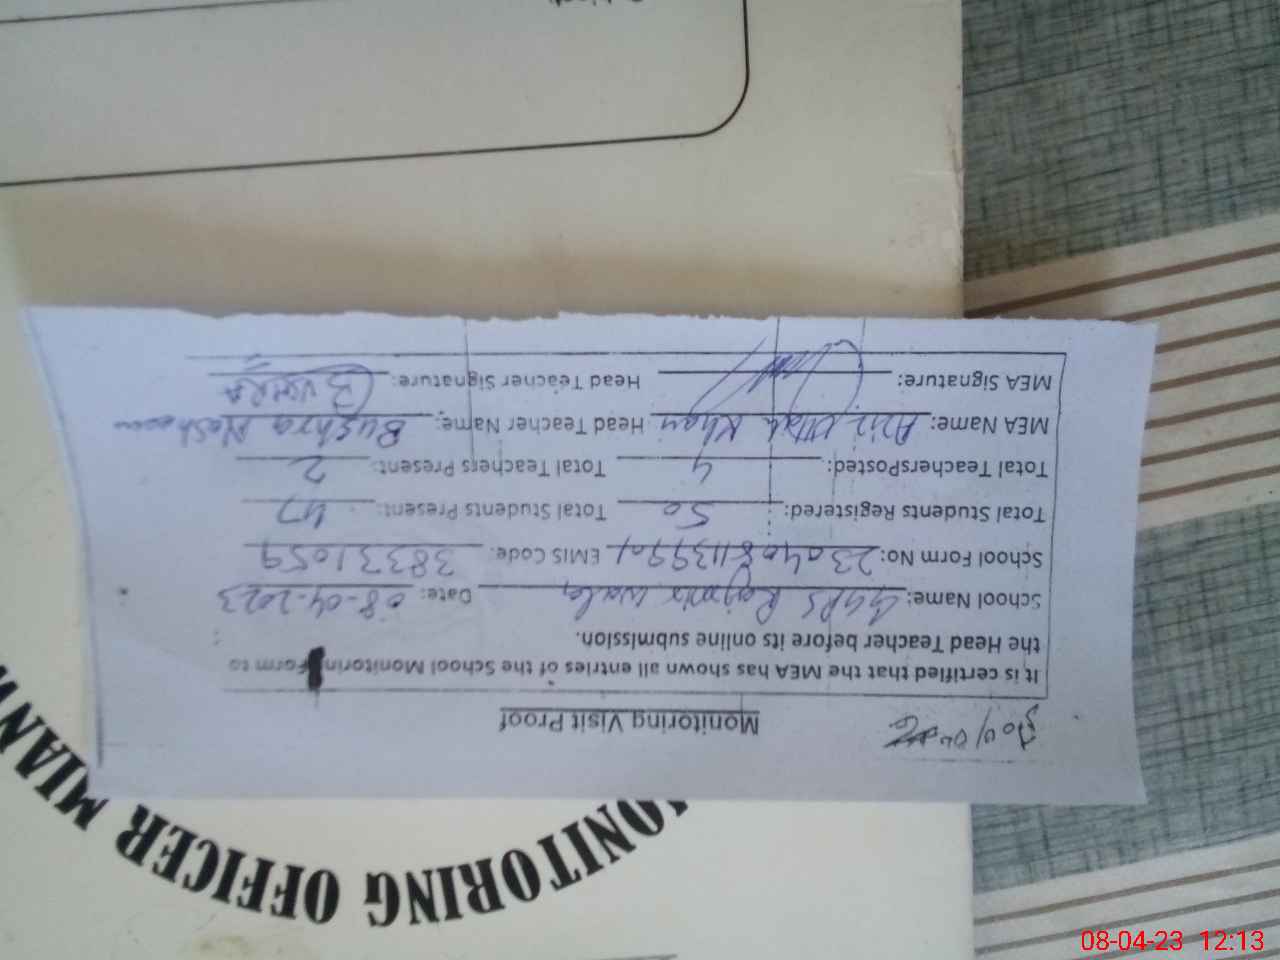 Monitoring Visit Proof
It is certified that the MEA has shown all entries of the School Monitoring Form to
the Head Teacher before its online submission.
School Name: GGPS Wala Date: 08-04-2023
School Form No: EMIS Code: 38331059
Total Students Registered: 50 Total Students Present: 47
Total TeachersPosted: 4 Total Teachers Present: 2
MEA Name: Khan Head Teacher Name: Bushra
MEA Signature: Head Teacher Signature: BUSHRA
MONITORING OFFICER MIANW
08-04-23 12:13